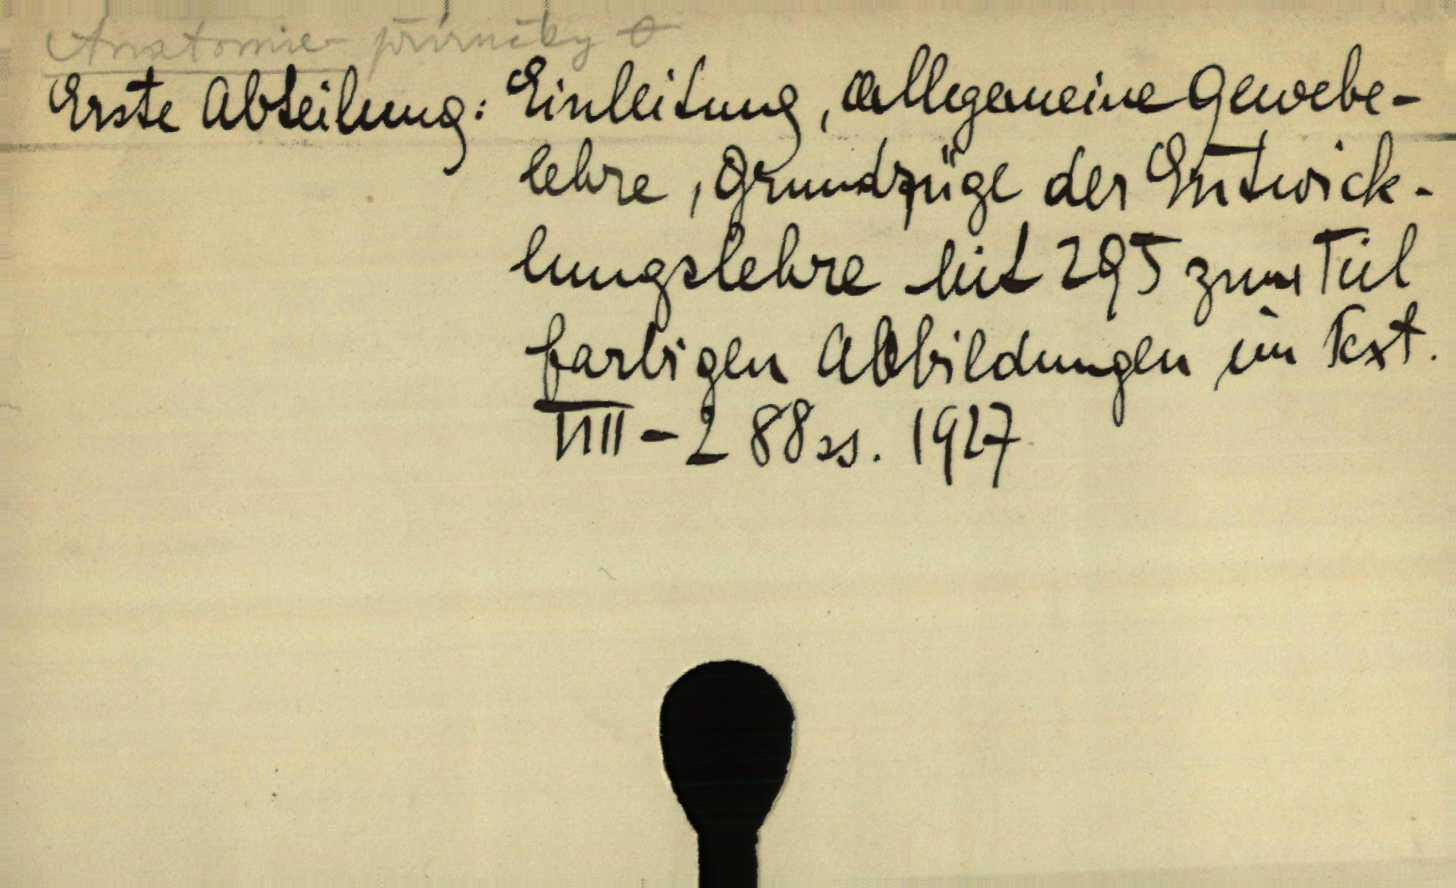 Anatomie - příručky
Erste Abteilung: Einleitung, allgemeine Gewebe-
lehre, Grundzüge der Entwick-
lungslehre Mit 295 zum Teil
farbigen Abbildungen im Text.
VIII - 288 ss. 1927